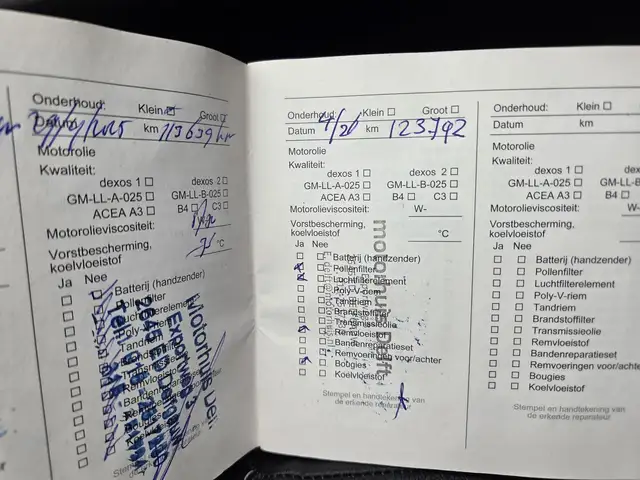 Onderhoud: Klein Groot
Datum km 113639
Motorolie
Kwaliteit:
dexos 1 dexos 2
GM-LL-A-025 GM-LL-B-025
ACEA A3 B4 C3
Motorolieviscositeit:
Vorstbescherming, koelvloeistof °C
Ja Nee
Batterij (handzender)
Pollenfilter
Luchtfilterelement
Poly-V-riem
Tandriem
Brandstoffilter
Transmissieolie
Remvloeistof
Bandenreparatieset
Bougies
Koelvloeistof
Stempel en
Motorhuis
Onderhoud: Klein Groot
Datum 4/20 km 123792
Motorolie
Kwaliteit:
dexos 1 dexos 2
GM-LL-A-025 GM-LL-B-025
ACEA A3 B4 C3
Motorolieviscositeit: W-
Vorstbescherming,
koelvloeistof °C
Ja Nee
Batterij (handzender)
Pollenfilter
Luchtfilterelement
Poly-V-riem
Tandriem
Brandstoffilter
Transmissieolie
Remvloeistof
Bandenreparatieset
Remvoeringen voor/achter
Bougies
Koelvloeistof
Stempel en handtekening van
de erkende reparateur
Onderhoud: Klein
Datum km
Motorolie
Kwaliteit:
dexos 1 de
GM-LL-A-025 GM-LL-B-
ACEA A3 B4
Motorolieviscositeit:
Vorstbescherming,
koelvloeistof
Ja Nee
Batterij (handzender)
Pollenfilter
Luchtfilterelement
Poly-V-riem
Tandriem
Brandstoffilter
Transmissieolie
Remvloeistof
Bandenreparatieset
Remvoeringen voor/achte
Bougies
Koelvloeistof
Stempel en handtekening van
de erkende reparateur